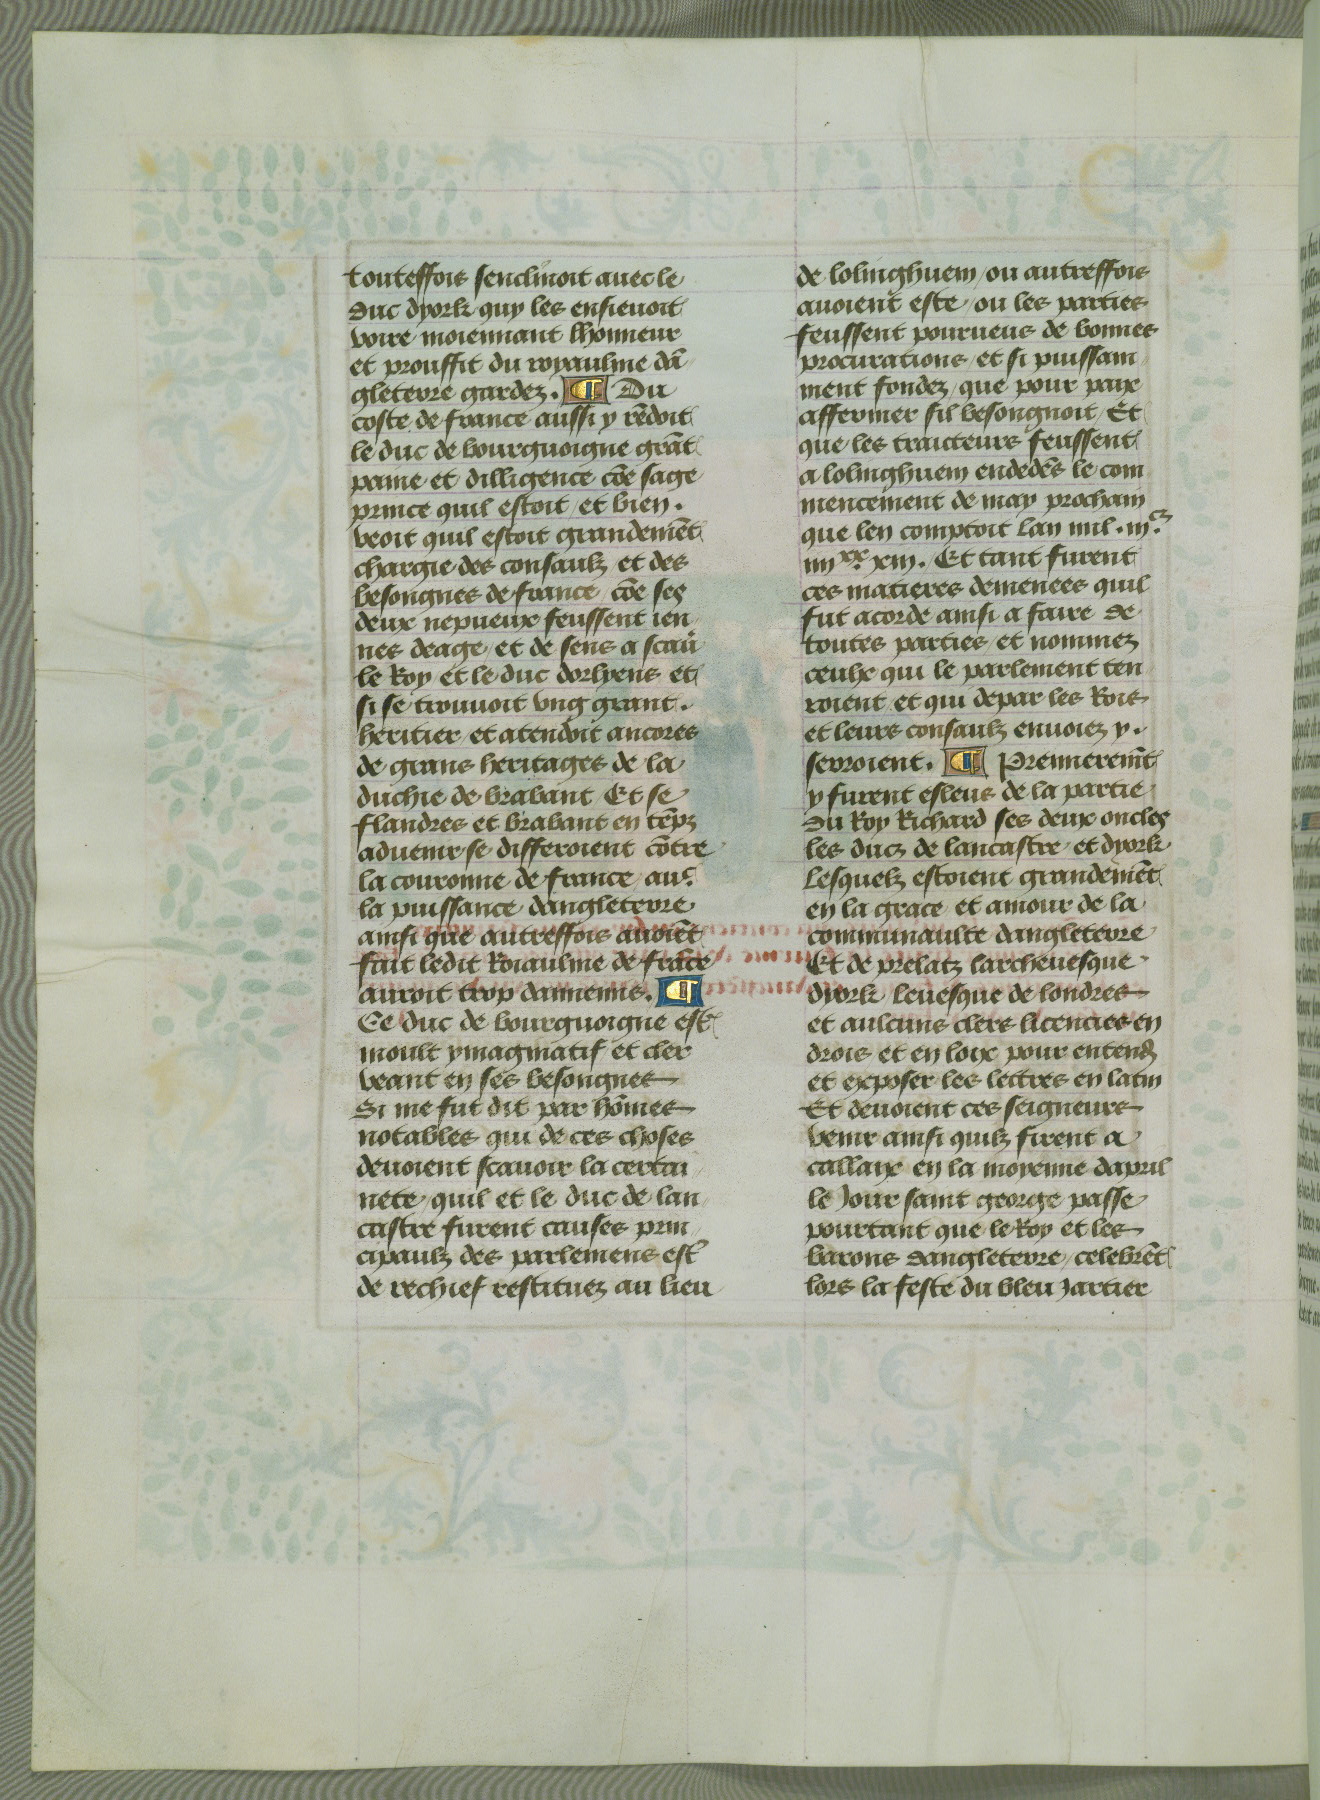 touteffois senclinoit avec le
duc dyork quy les ensievoit
voire moiennant lhonneur
et prouffit du royaulme dā
gleterre gardez. ¶ Du
coste de france aussi y rēdoit
le duc de bourguoigne grāt
paine et dilligence cōe sage
prince quil estoit / et bien .
veoit quil estoit grandemēt
chargie des consaulz et des
besongnes de france / cōe ses
deux nepueux feussent ien
nes deage / et de sens a scau̇
le Roy et le duc dorlyens et
si se trouvoit vng grant .
heritier et atendoit ancores
de grans heritages de la
duchie de brabant Et se
flandres et brabant en tēps
aduenir se differoient cōtre
la couronne de france / au
la puissance dangleterre
ainsi que autreffois avoiēt
fait ledit Roiaulme de frāce
auroit trop dannemis. ¶
Ce duc de bourguoigne est
moult ymaginatif et cler
veant en ses besongnes
Si me fut dit par hōmes
notables qui de ces choses
devoient scavoir la certai
nete / quil et le duc de lan
castre furent causes prin
cipaulz des parlemens est
de rechief restituez au lieu
de lolinghuem / ou autreffois
avoient este / ou les parties
feussent pourueus de bonnes
procurations / et si puissam
ment fondez / que pour paix
affermer sil besongnoit / Et
que les traicteurs feussent
a lolinghuem endedēs le com
mencement de may prochain
que len comptoit lan mil . iijᶜ.
iiijˣˣ. xiij. Et tant furent
ces matieres demenees quil
fut acorde ainsi a faire de
toutes parties / et nommez
ceulx qui le parlement ten
roient / et qui depar les Rois
et leurs consaulz envoiez y .
seroient. ¶ Premieremt
y furent esleus de la partie
du Roy Richard ses deux oncles
les ducz de lancastre / et dyork
Lesquelz estoient grandemēt
en la grace et amour de la
communaulte dangleterre
Et de prelatz larchevesque
dyork levesque de londres
et aulcuns clers licencies en
drois et en loix pour entend̄
et exposer les lettres en latin
Et devoient ces seigneurs
venir ainsi quilz firent a
callaix en la moyenne dapril
le Jour saint george passe
pourtant que le Roy et les
barons dangleterre / celebrēt
lors la feste du bleu Jartier